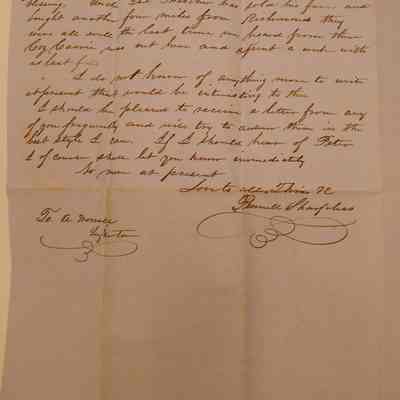 and Lee has sold his farm and
bought another four miles from Richmond they
were all well the last time we heard from them
Coz Carrie was out here and spent a week with
us last
I do not know of anything more to write
at present that would be interesting to the
I should be pleased to receive a letter from any
of you frequently and will try to answer them in the
best style I can. If I should hear of Peter
I of course shall let you know immediately
No more at present
Love to all Thine &C
Sharpless
To A